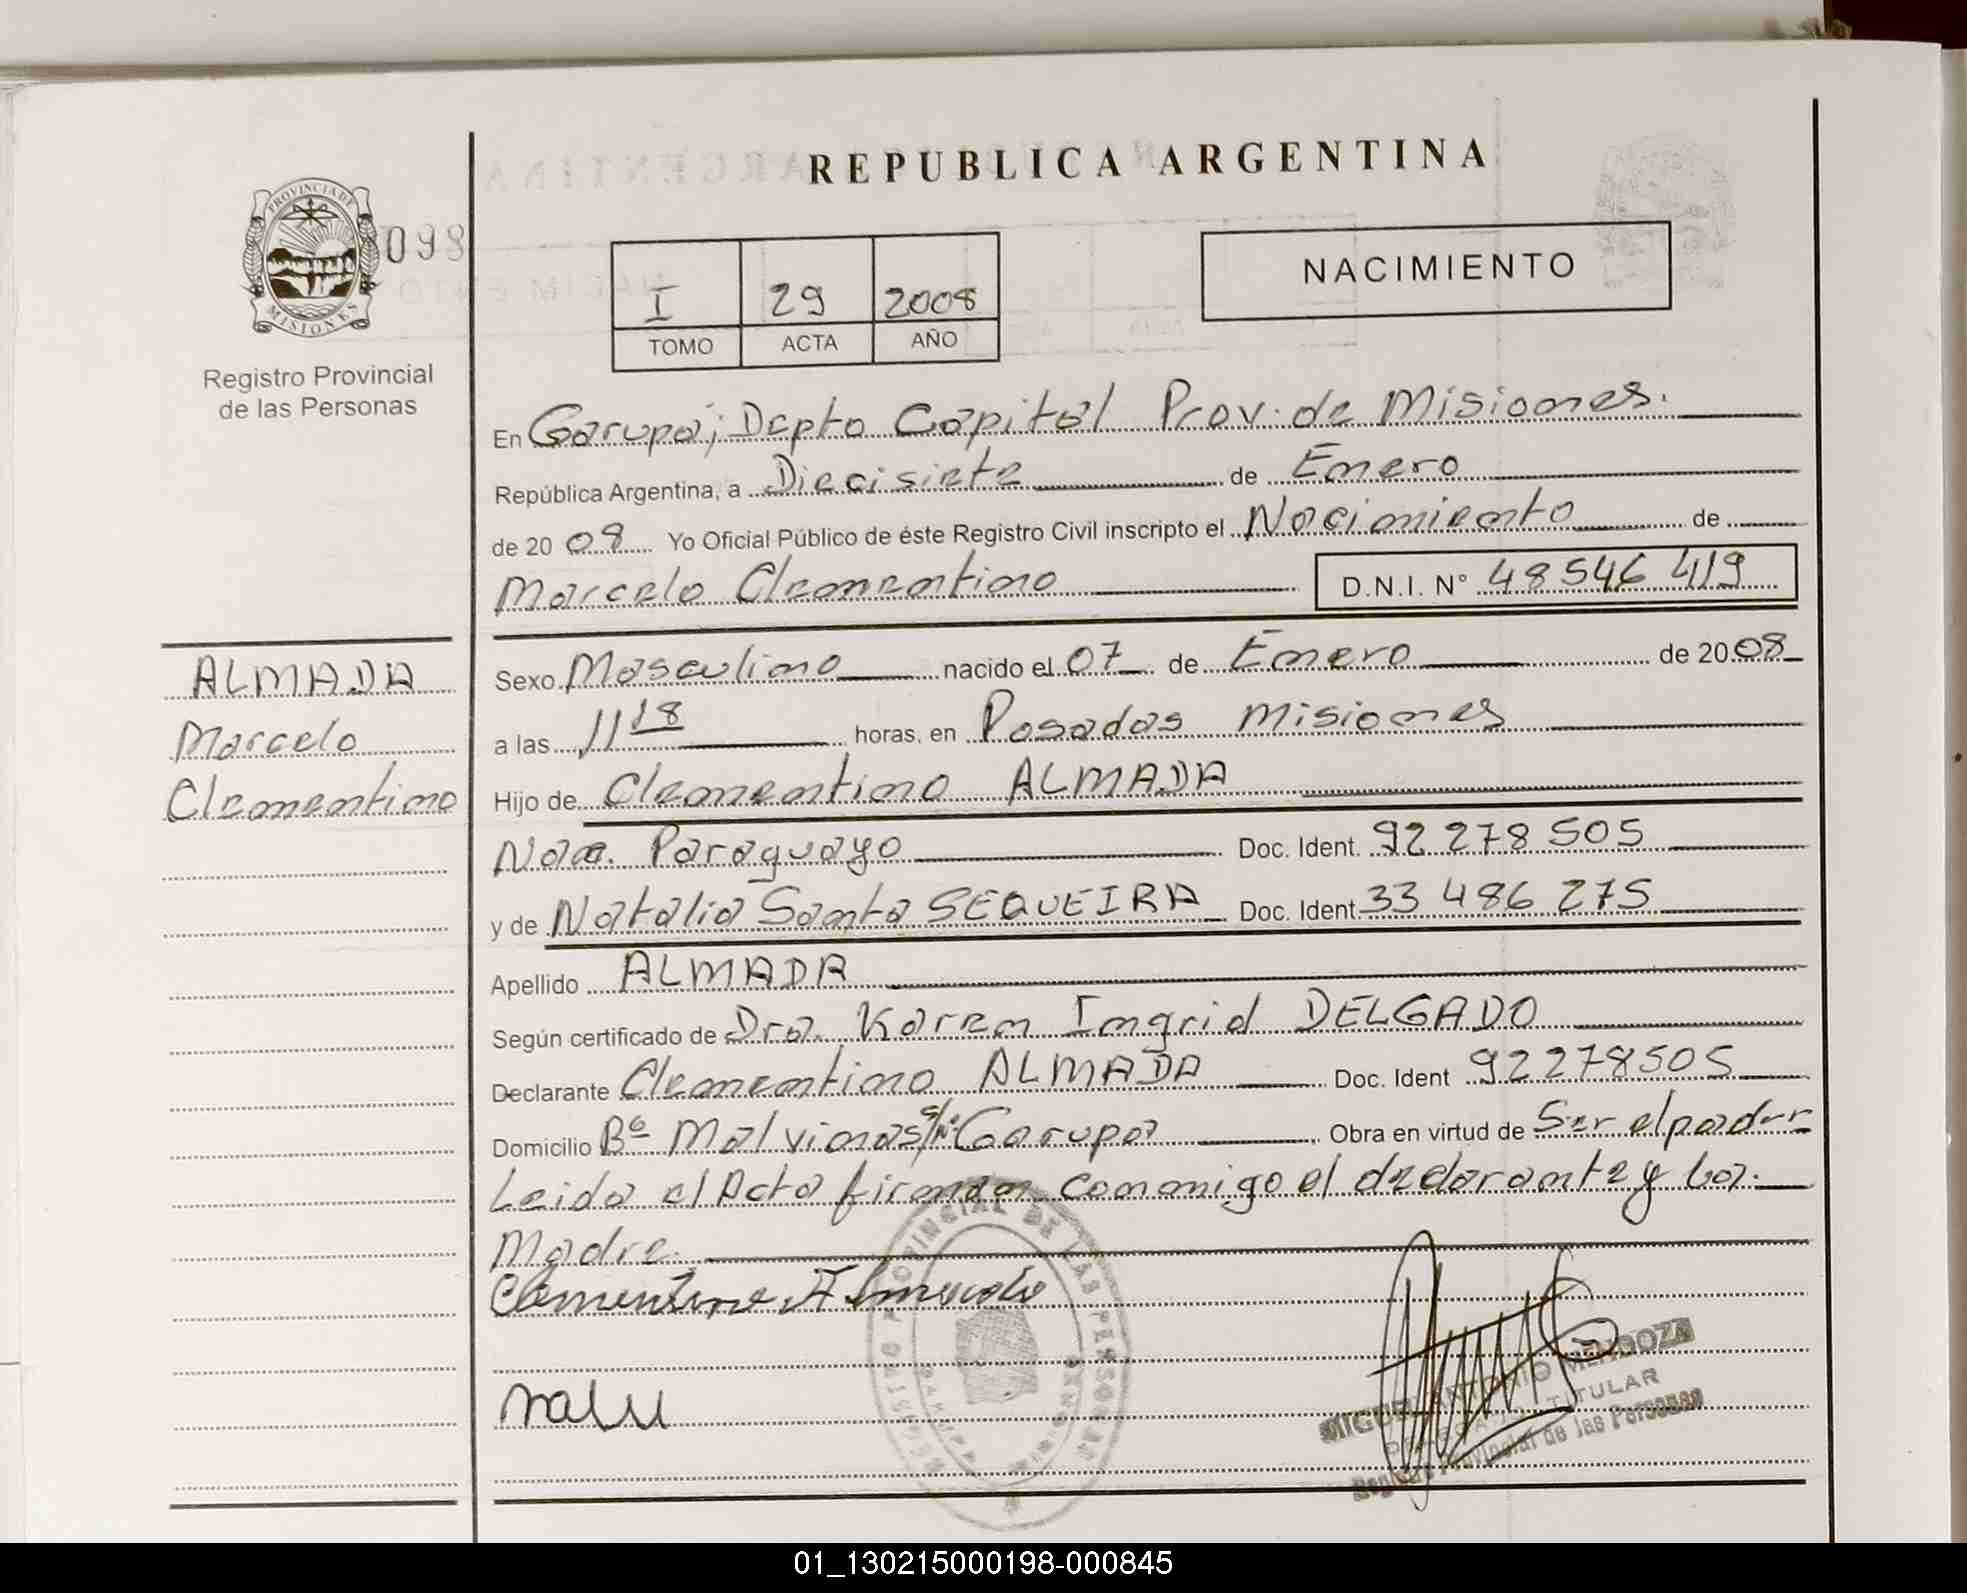 REPUBLICA ARGENTINA
PROVINCIA DE MISIONES
098
Registro Provincial
de las Personas
I 29 2008
TOMO ACTA AÑO
NACIMIENTO
En Garupá; Depto Capital Prov. de Misiones.
República Argentina, a Diecisiete de Enero
de 20 08 Yo Oficial Público de éste Registro Civil inscripto el Nacimiento de
Marcelo Clementino D.N.I. N° 48546 419
ALMADA
Marcelo
Clementino
Sexo Masculino nacido el 07 de Enero de 20 08
a las 11 18 horas, en Posadas Misiones
Hijo de Clementino ALMADA
Nac. Paraguayo Doc. Ident. 92 278 505
y de Natalia Santa SEQUEIRA Doc. Ident. 33 486 275
Apellido ALMADA
Según certificado de Dra. Karen Ingrid DELGADO
Declarante Clementino ALMADA Doc. Ident 92278505
Domicilio Bº Malvinas s/nº Garupa Obra en virtud de Ser el padre
Leida el Acta firman conmigo el declarante y la.
Madre.
Clementino Almada
REGISTRO PROVINCIAL DE LAS PERSONAS
GARUPA
MISIONES
MIGUEL ANTONIO MENDOZA
DELEGADO TITULAR
Registro Provincial de las Personas
01_130215000198-000845